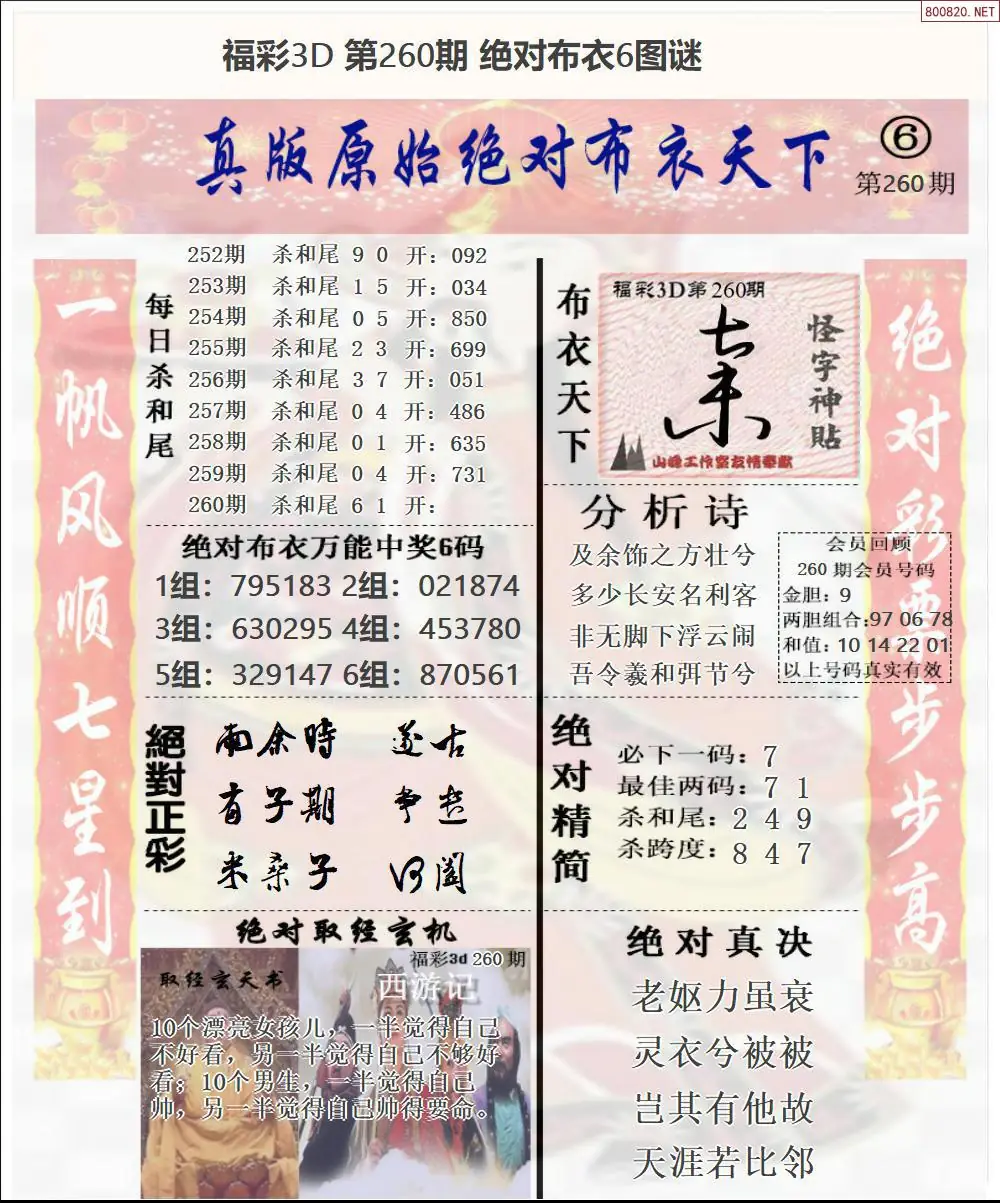 800820.NET
福彩3D 第260期 绝对布衣6图谜
真版原始绝对布衣天下
⑥
第260期
一帆风顺七星到
每日杀和尾
252期 杀和尾 9 0 开：092
253期 杀和尾 1 5 开：034
254期 杀和尾 0 5 开：850
255期 杀和尾 2 3 开：699
256期 杀和尾 3 7 开：051
257期 杀和尾 0 4 开：486
258期 杀和尾 0 1 开：635
259期 杀和尾 0 4 开：731
260期 杀和尾 6 1 开：
绝对布衣万能中奖6码
1组：795183 2组：021874
3组：630295 4组：453780
5组：329147 6组：870561
絕對正彩
南余時
有子期 争
米桑子 何
绝对取经玄机
福彩3d 260 期
取经玄天书
西游记
10个漂亮女孩儿，一半觉得自己
不好看，另一半觉得自己不够好
看；10个男生，一半觉得自己
帅，另一半觉得自己帅得要命。
布衣天下
福彩3D第260期
怪字神贴
山峰工作室友情奉献
分析诗
及余饰之方壮兮
多少长安名利客
非无脚下浮云闹
吾令羲和弭节兮
会员回顾
260 期会员号码
金胆：9
两胆组合:97 06 78
和值：10 14 22 01
以上号码真实有效
绝对精简
必下一码：7
最佳两码：7 1
杀和尾：2 4 9
杀跨度：8 4 7
绝对真决
老妪力虽衰
灵衣兮被被
岂其有他故
天涯若比邻
绝对彩票步步高